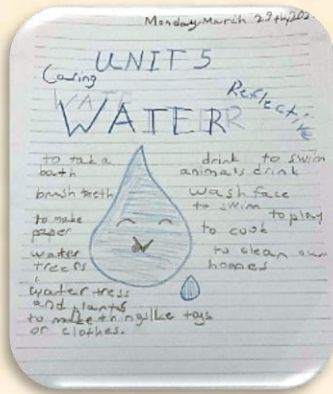 Monday March 29th, 202
UNIT 5
Caring
Reflective
WATER
WATER
to take a
bath
brush teeth
to make
paper
water
trees
water tress
and plants
to make things like toys
or clothes.
drink to swim
animals drink
wash face
to swim
to play
to cook
to clean our
homes